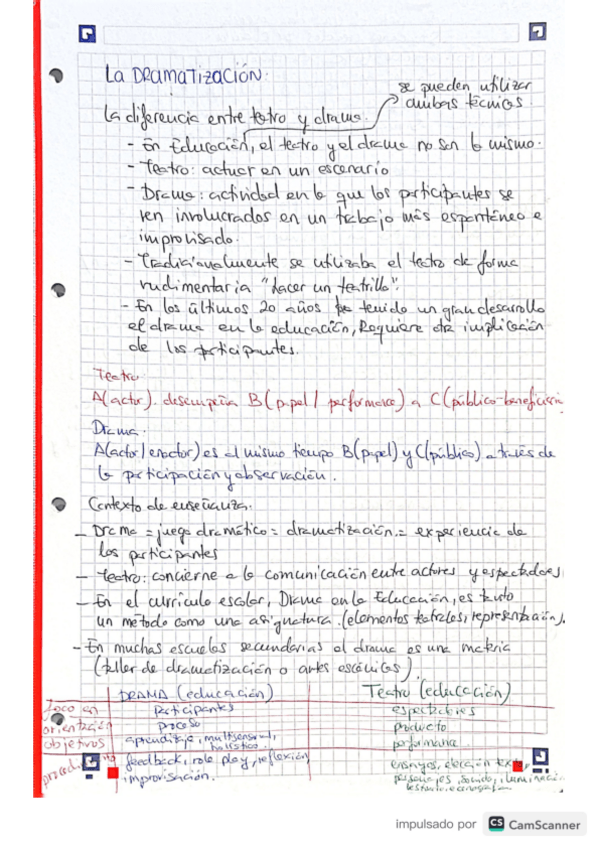 La DRAMATIZACIÓN.
se pueden utilizar
ambas técnicas.
La diferencia entre teatro y drama.
- En Educación, el teatro y el drama no son lo mismo.
- Teatro: actuar en un escenario
- Drama: actividad en la que los participantes se
ven involucrados en un trabajo más espontáneo e
improvisado.
- Tradicionalmente se utilizaba el teatro de forma
rudimentaria "hacer un teatrillo".
- En los últimos 20 años ha tenido un gran desarrollo
el drama en la educación, Requiere otra implicación
de los participantes.
Teatro
A(actor). desempeña B(papel / performance) a C(público-beneficiario
Drama.
A(actor/enactor) es al mismo tiempo B(papel) y C(público). a través de
la participación y observación.
Contexto de enseñanza.
- Drama = juego dramático = dramatización = experiencia de
los participantes
- Teatro: concierne a la comunicación entre actores y espectadores
- En el currículo escolar, Drama en la Educación, es tanto
un método como una asignatura. (elementos teatrales, representación).
- En muchas escuelas secundarias el drama es una materia
(taller de dramatización o artes escénicas).
DRAMA (educación) Teatro (educación)
foco en participantes espectadores
orientación proceso producto
objetivos aprendizaje, multisensorial, performance
holístico.
feedback, role play, reflexión ensayos, elección texto,
improvisación. personajes, sonido, iluminación
vestuario, escenografía
impulsado por CS CamScanner